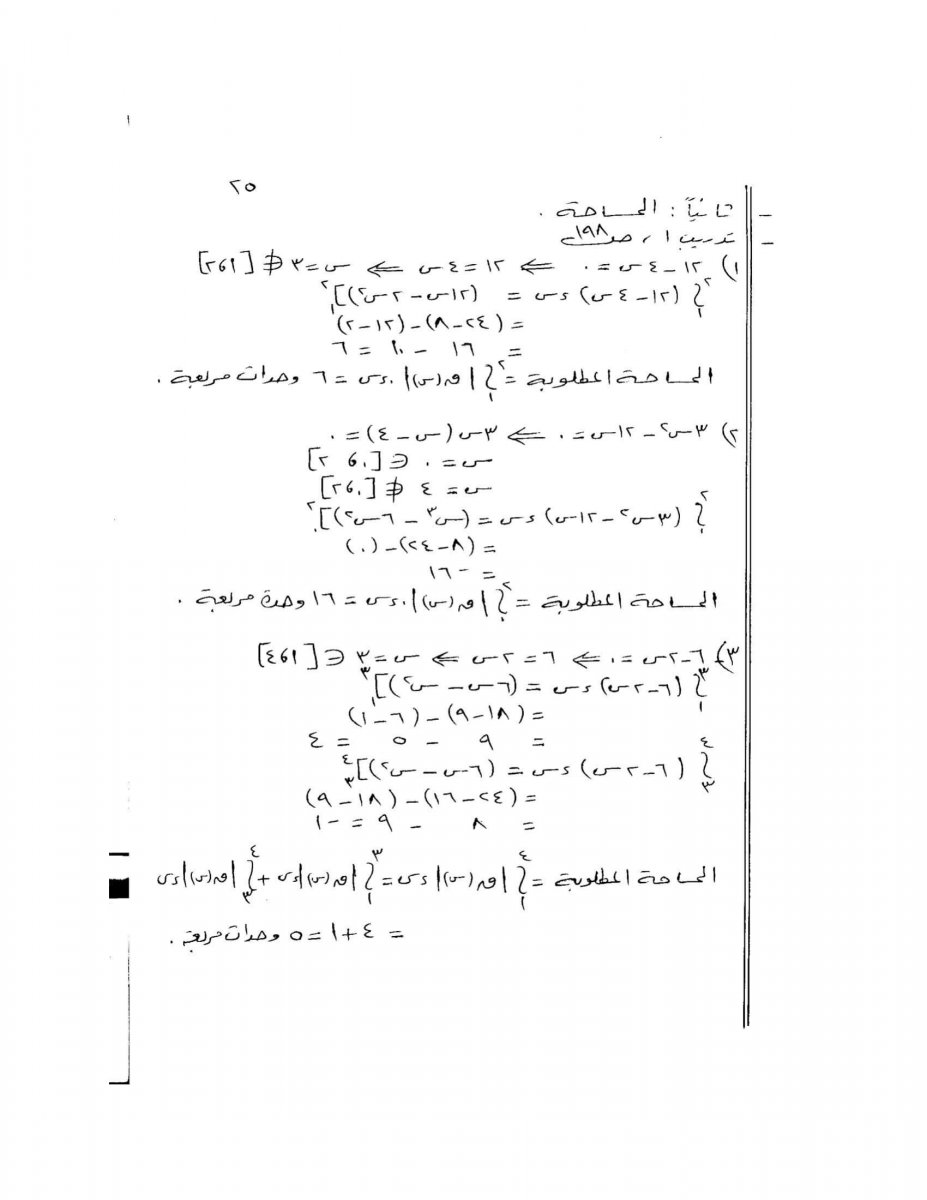 ٢٥
- ثانياً : المساحة .
- تدريب ١ ، صـ١٩٨ـ
١) ١٢ - ٤س = ٠ ⇐ ١٢ = ٤س ⇐ س = ٣ ∉ [١ ، ٢]
∫₁² (١٢ - ٤س) ءس = (١٢س - ٢س²)]₁²
= (٢٤ - ٨) - (١٢ - ٢)
= ١٦ - ١٠ = ٦
المساحة المطلوبة = ∫₁² |ق(س)| . ءس = ٦ وحدات مربعة .
٢) ٣س² - ١٢س = ٠ ⇐ ٣س(س - ٤) = ٠
س = ٠ ∈ [٠ ، ٢]
س = ٤ ∉ [٠ ، ٢]
∫₀² (٣س² - ١٢س) ءس = (س³ - ٦س²)]₀²
= (٨ - ٢٤) - (٠)
= -١٦
المساحة المطلوبة = ∫₀² |ق(س)| . ءس = ١٦ وحدة مربعة .
٣) ٦ - ٢س = ٠ ⇐ ٦ = ٢س ⇐ س = ٣ ∈ [١ ، ٤]
∫₁³ (٦ - ٢س) ءس = (٦س - س²)]₁³
= (١٨ - ٩) - (٦ - ١)
= ٩ - ٥ = ٤
∫₃⁴ (٦ - ٢س) ءس = (٦س - س²)]₃⁴
= (٢٤ - ١٦) - (١٨ - ٩)
= ٨ - ٩ = -١
المساحة المطلوبة = ∫₁⁴ |ق(س)| ءس = ∫₁³ |ق(س)| ءس + ∫₃⁴ |ق(س)| ءس
= ٤ + ١ = ٥ وحدات مربعة .